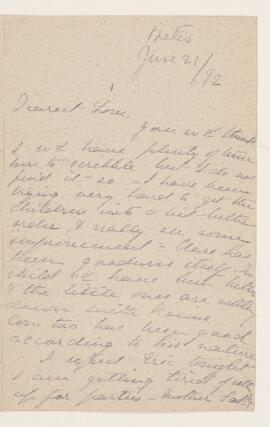 Metis
June 21/92
Dearest Lou,
you wd think
I wd have plenty of time
here to scribble but I do not
find it so - I have been
trying very hard to get the
children into a bit better
order, & really see some
improvement - Clare has
been goodness itself - no
child cd have been better
& the little ones are settling
down with
too has been good
according to his nature
I expect Eric tonight
I am getting tired of
up for parties - Mother